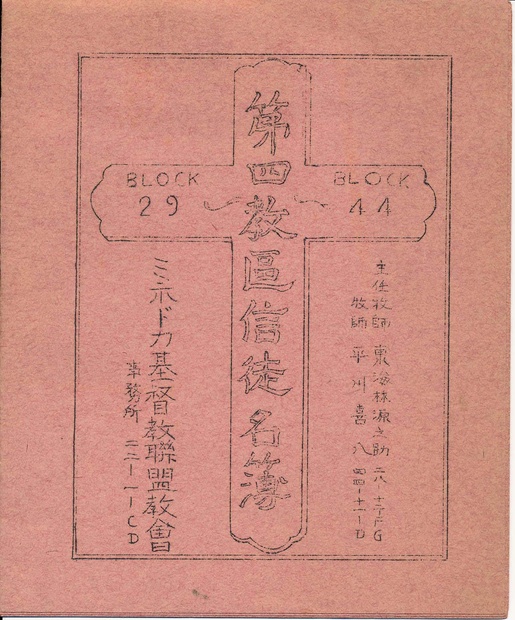 BLOCK 29 ～ BLOCK 44
第四教區信徒名簿
主任牧師 東海林源之助
牧師 平川喜八
ミネドカ基督教聯盟教會
事務所 二二-一-CD